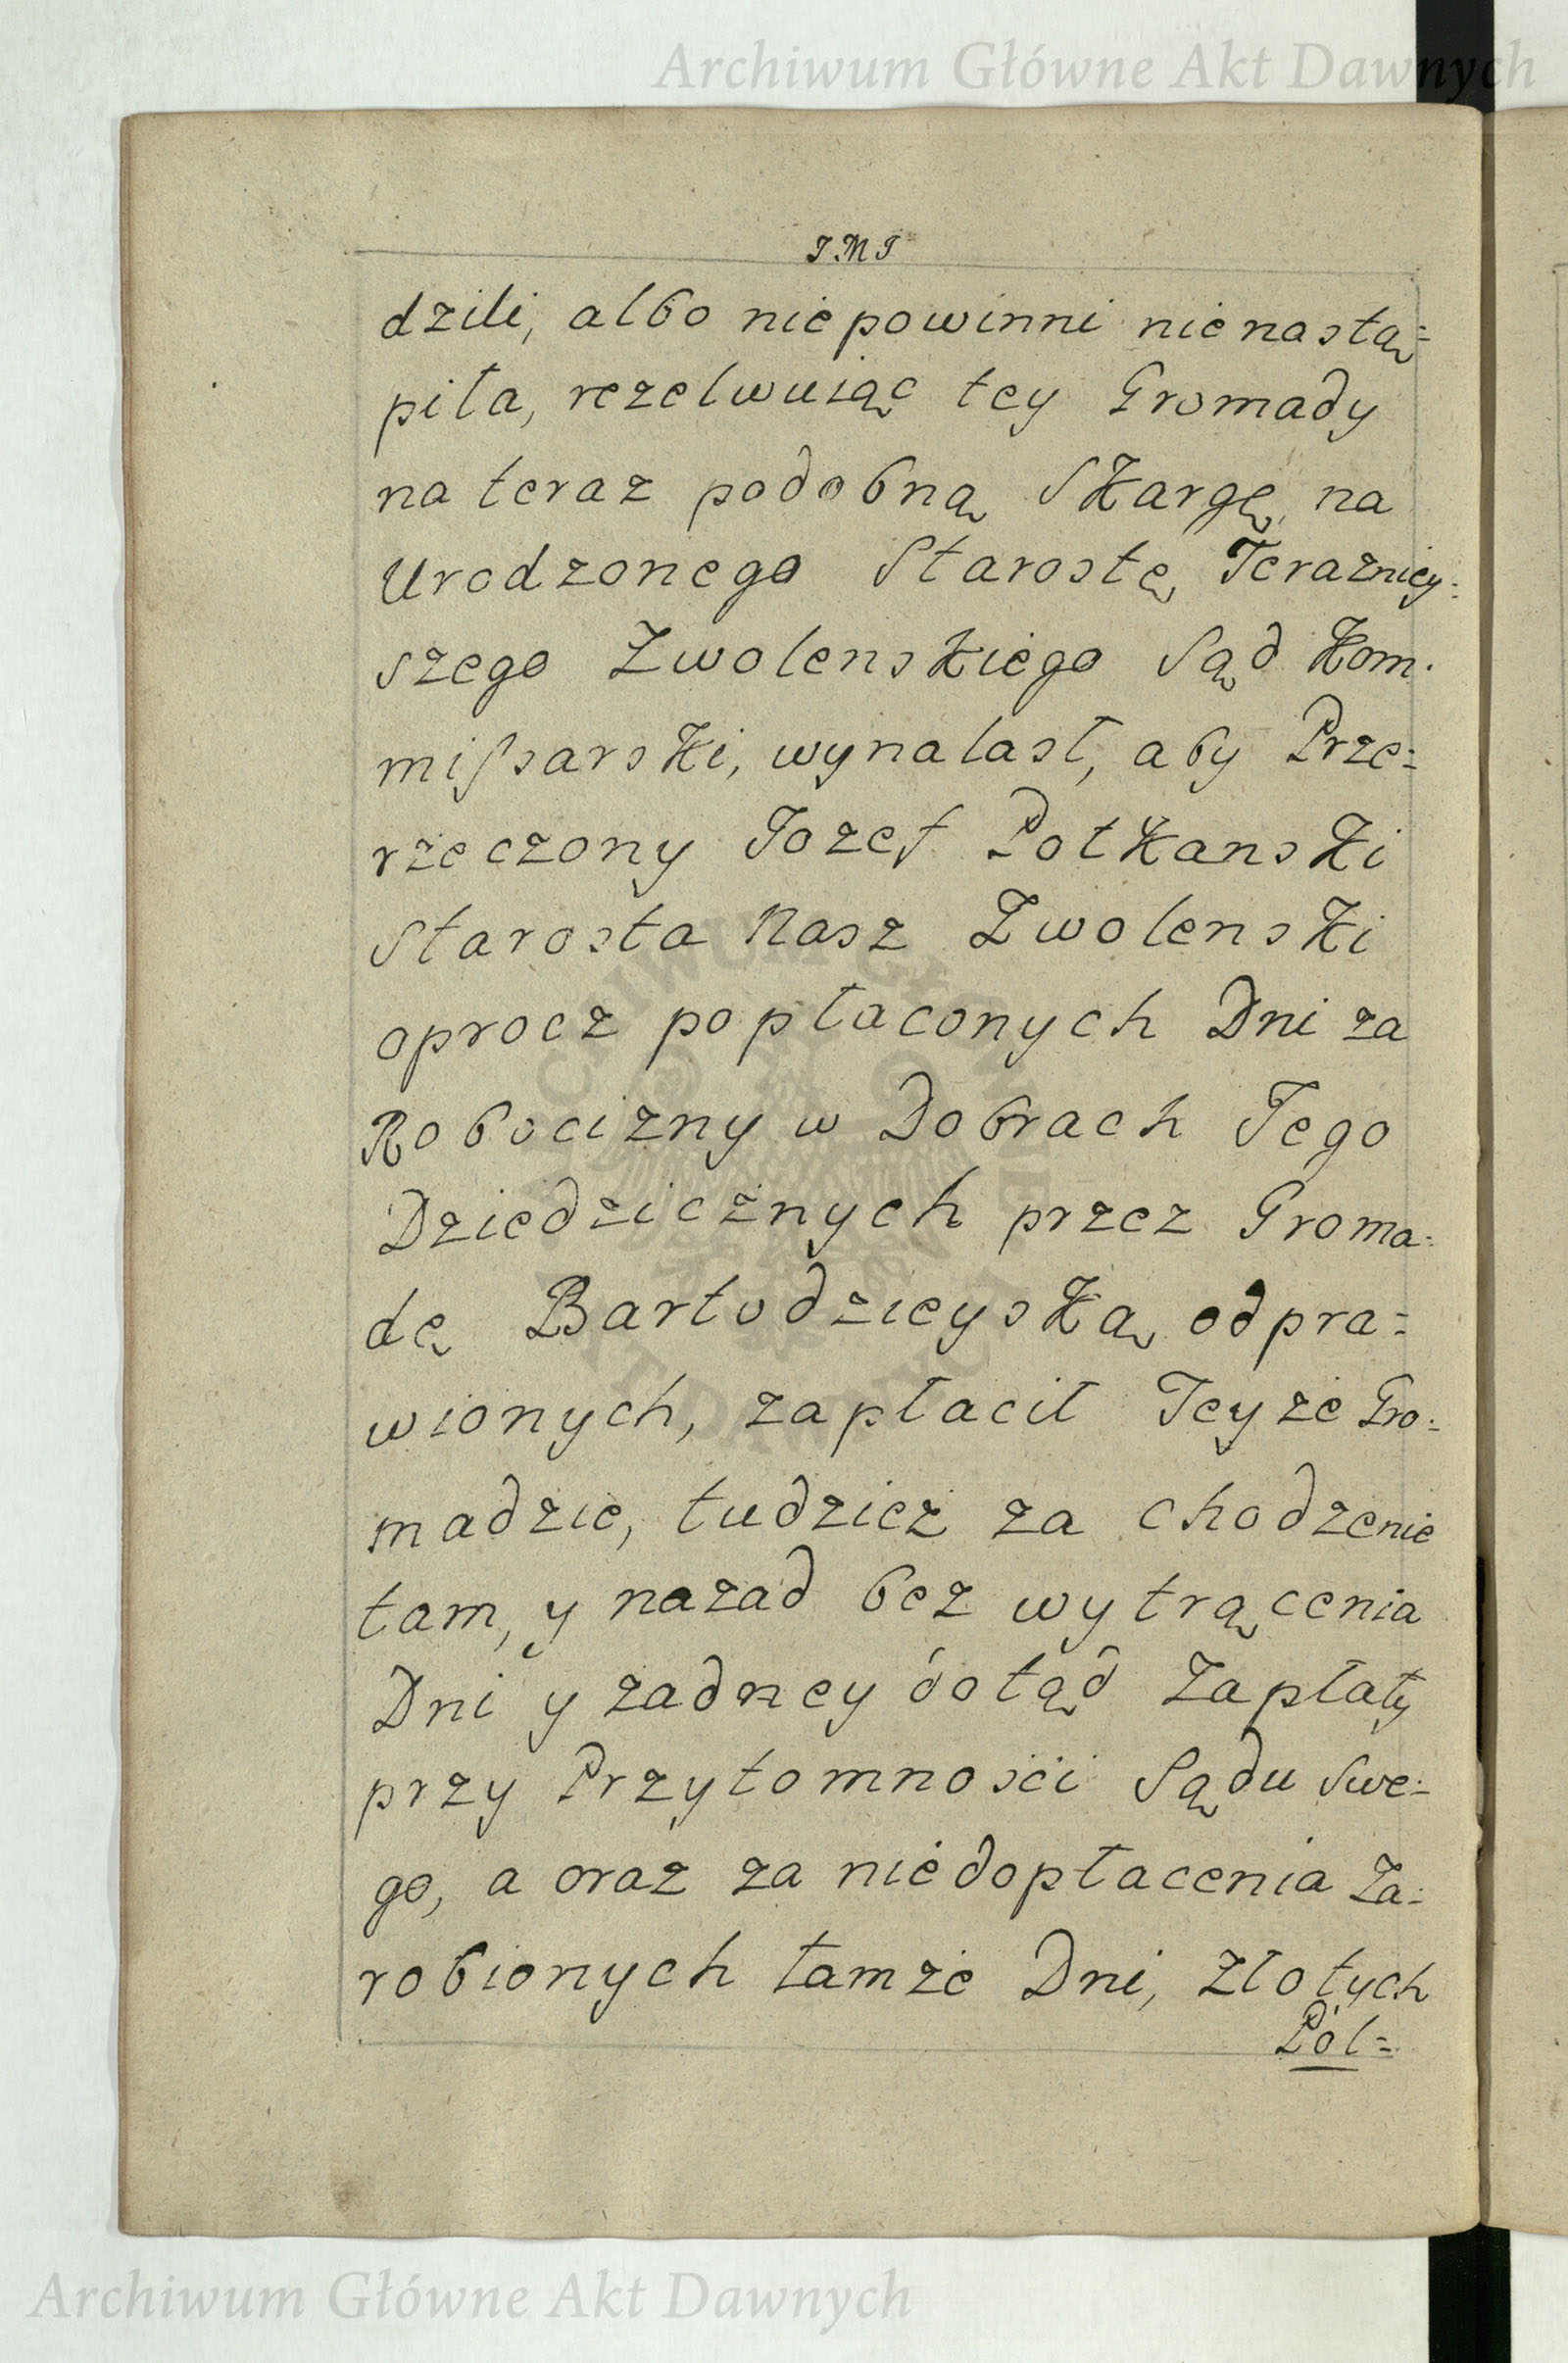 Archiwum Główne Akt Dawnych
J.M J
dzili, albo niepowinni nienastą=
piła, rezelwuiąc tey Gromady
na teraz podobną Skargę, na
Urodzonego Starostę Terazniey=
szego Zwolenskiego Sąd Kom.
mißarski, wynalasł, aby Prze=
rzeczony Jozef Potkanski
Starosta Nasz Zwolenski
oprocz popłaconych Dni za
Robocizny w Dobrach Jego
Dziedzicznych przez Groma=
dę Bartodzieyską odpra=
wionych, zapłacił Teyże Gro=
madzie, tudzież za chodzenie
tam, y nazad bez wytrącenia
Dni y żadney dotąd Zapłaty
przy Przytomnosci Sądu Swe=
go, a oraz za niedopłacenia Za=
robionych tamże Dni, Złotych
Pol=
Archiwum Główne Akt Dawnych